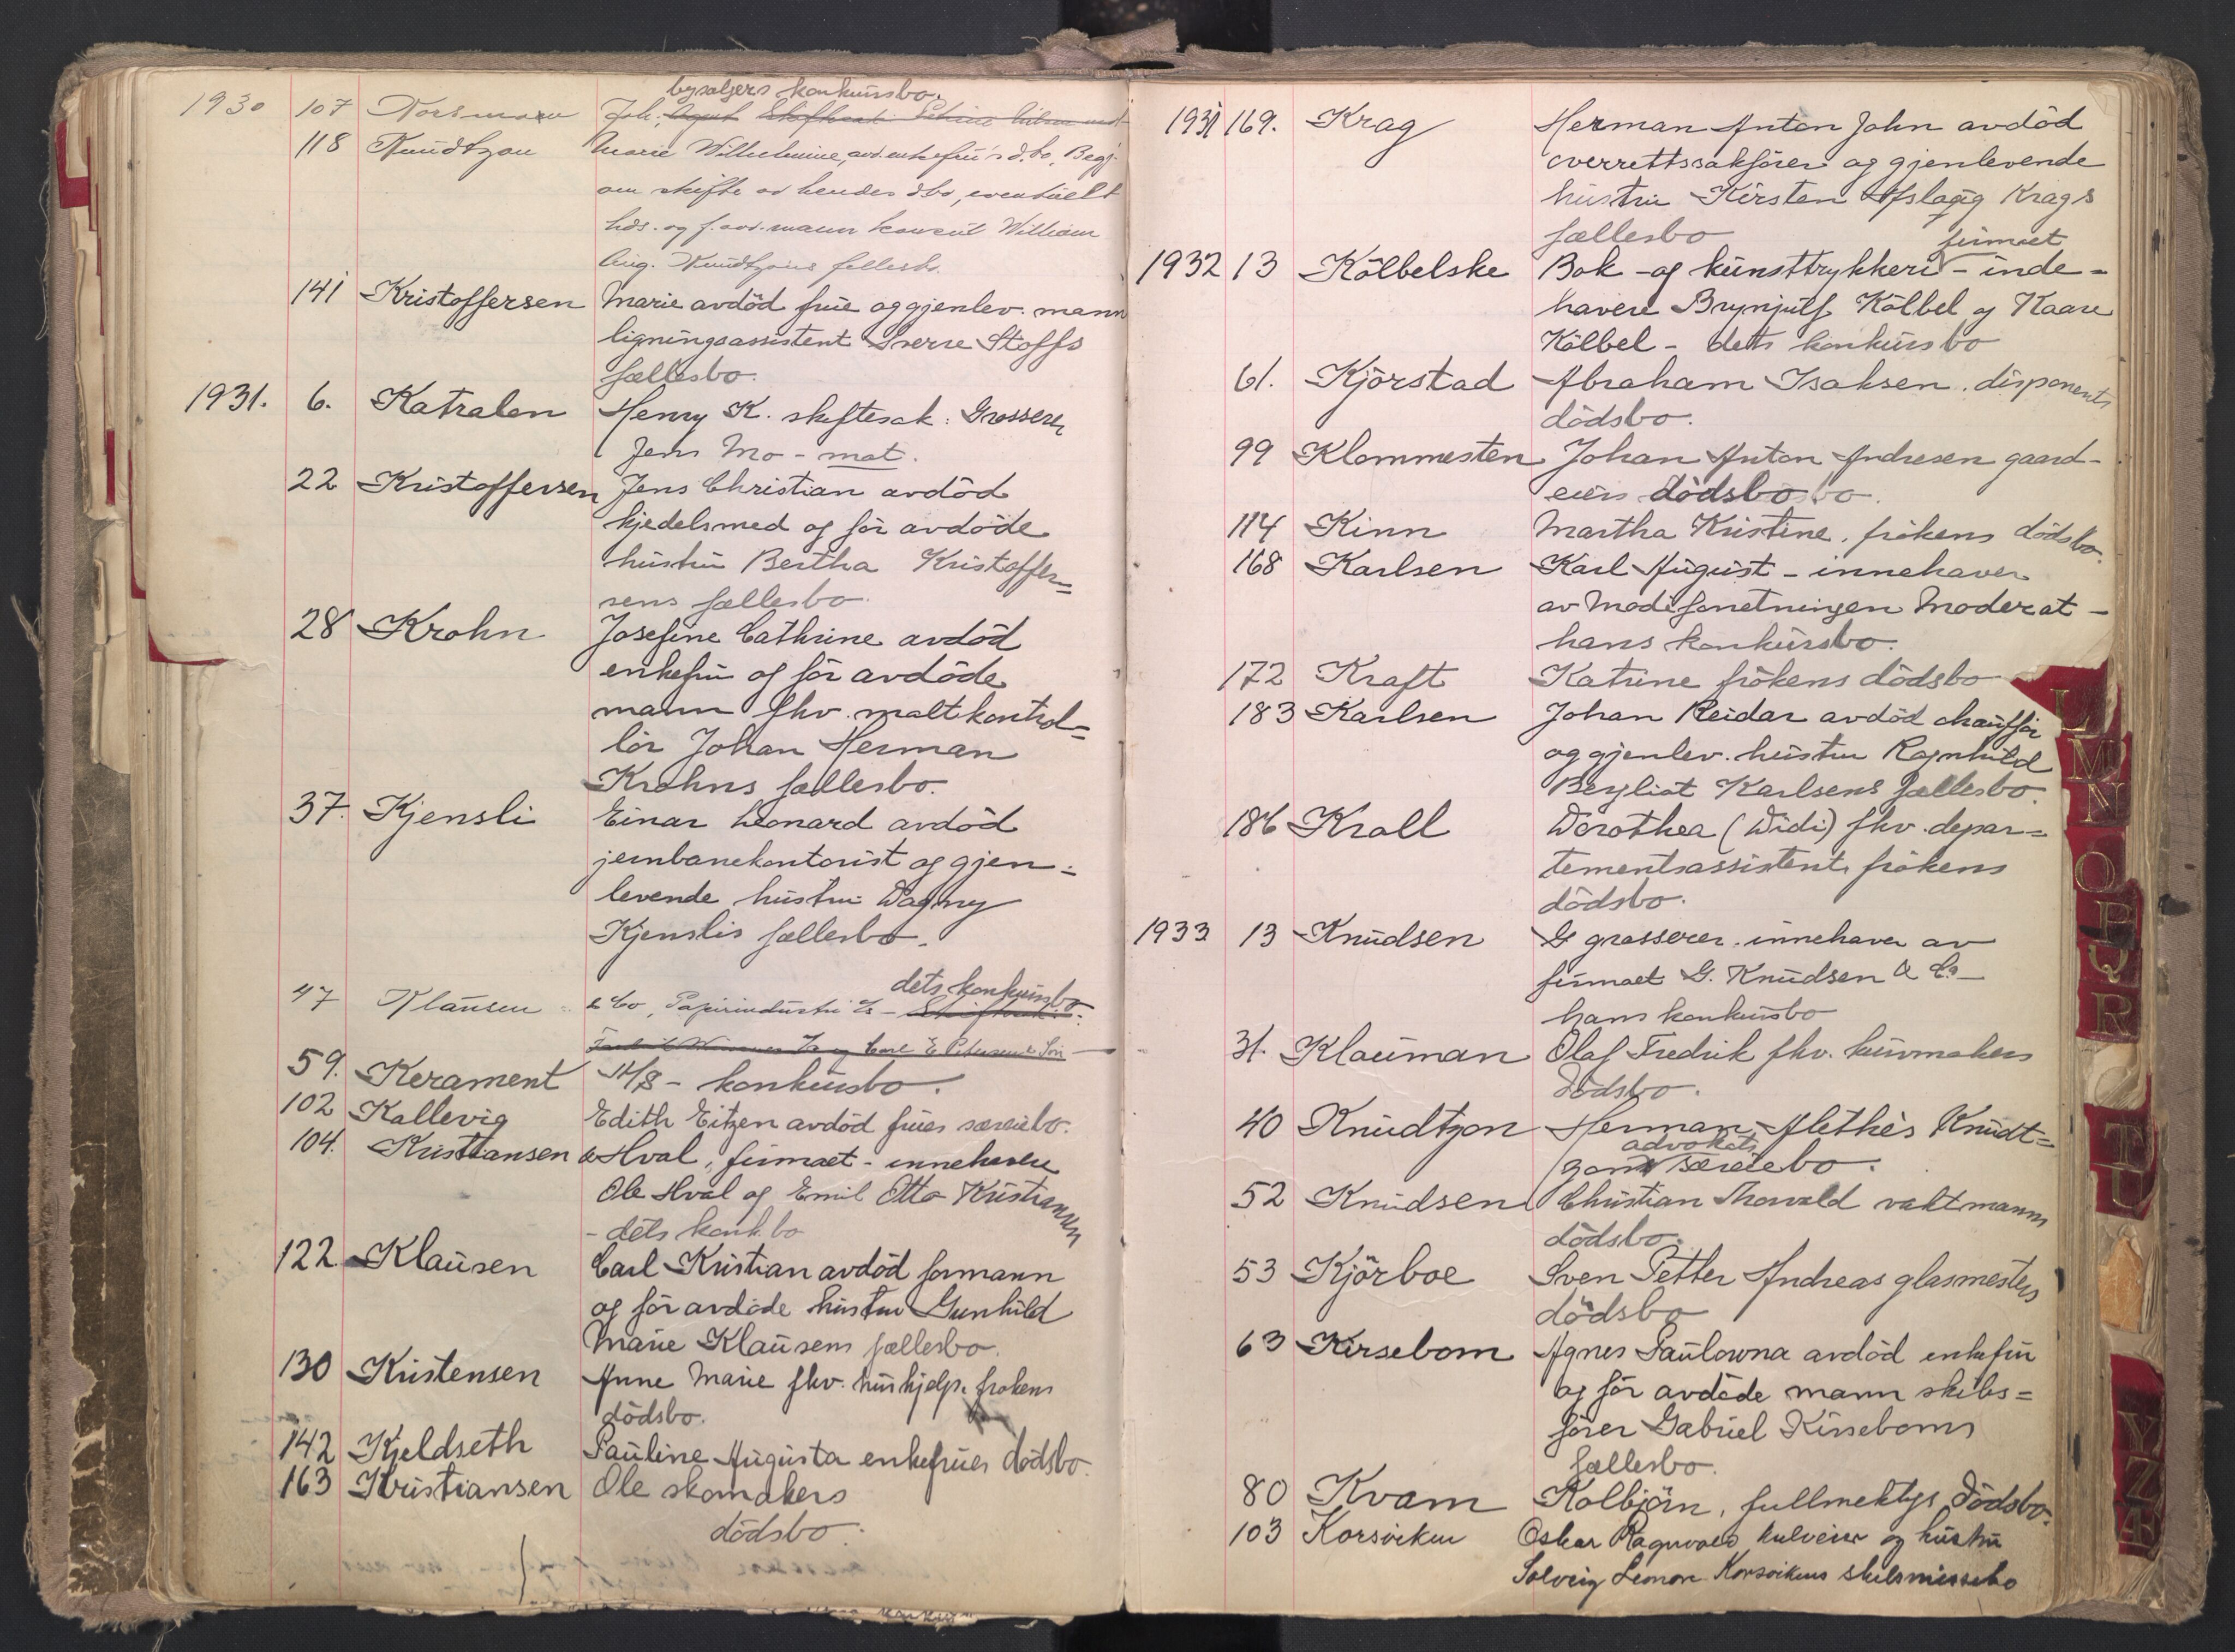 bysælgers konkursbo.
1930 107 Joh.
118 Knudtzon Marie Wilhelmine, avd. enkefru's d.bo, Begj.
om skifte av hendes dbo, eventuelt
hds. og f. avd. mann konsul William
Aug. Knudtzons fellesbo.
141 Kristoffersen Marie avdöd frue og gjenlev. mann
ligningsassistent Sverre Stoffs
fællesbo.
1931. 6. Katralen Henry K. skiftesak: Grosserer
Jens Mo - mot.
22 Kristoffersen Jens Christian avdöd
kjedelsmed og för avdöde
hustru Bertha Kristoffer=
sens fællesbo.
28 Krohn Josefine Cathrine avdöd
enkefru og för avdöde
mann fhv. maltkontrol=
lör Johan Herman
Krohns fællesbo.
37. Kjensli Einar Leonard avdöd
jernbanekontorist og gjen=
levende hustru Dagny
Kjenslis fællesbo.
dets konkursbo.
47 Klausen & Co, Papirindustri
59. Kerament A/S - konkursbo.
102 Kallevig Edith Eitzen avdöd frues særeiebo.
104. Kristiansen & Hval, firmaet - innehavere
Ole Hval og Emil Otto Kristiansen
- dets konk.bo
122 Klausen Carl Kristian avdöd formann
og för avdöde hustru Gunhild
Marie Klausens fællesbo.
130 Kristensen Anne Marie fhv. hushjelp. frökens
dödsbo.
142 Kjeldseth Pauline Augusta enkefrues dödsbo.
163 Kristiansen Ole skomakers
dödsbo.
1931 169. Krag Herman Anton John avdöd
overrettssakförer og gjenlevende
hustru Kirsten Aslaug Krags
fællesbo
firmaet
1932 13 Kölbelske Bok - og kunsttrykkeri - inde=
havere Brynjulf Kölbel og Kaare
Kölbel - dets konkursbo
61. Kjörstad Abraham Isaksen. disponents
dödsbo.
99 Klommesten Johan Anton Andresen gaard-
eiers dödsbo
114 Kinn Martha Kristine. frökens dödsbo.
168 Karlsen Karl August - innehaver
av Modeforretningen Moderat -
hans konkursbo.
172 Kraft Katrine frökens dödsbo
183 Karlsen Johan Reidar avdöd chaufför
og gjenlev. hustru Ragnhild
Bergliot Karlsens fællesbo.
186 Kroll Dorothea (Didi) fhv. depar=
tementsassistent frökens
dödsbo.
1933 13 Knudsen G grosserer. innehaver av
firmaet G. Knudsen & Co -
hans konkursbo
31. Klauman Olaf Fredrik fhv. kurvmakers
dödsbo.
40 Knudtzon Herman Alethés Knudt=
advokats
zons særeiebo.
52 Knudsen Christian Thorvald vaktmanns
dödsbo.
53 Kjörboe Sven Petter Andreas glasmesters
dödsbo
63 Kirsebom Agnes Paulowna avdöd enkefru
og för avdöde mann skibs=
förer Gabriel Kirseboms
fællesbo.
80 Kvam Kolbjörn, fullmektigs dödsbo.
103 Korsviken Oskar Ragnvald og hustru
Solveig Korsvikens skilsmissebo
L
M
N
O
P
Q
R
T
U
Y
Z
Æ